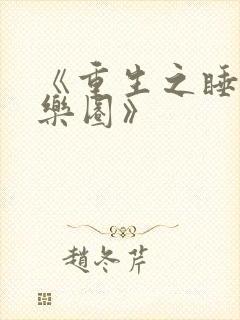 《重生之睡
樂園》
趙冬芹